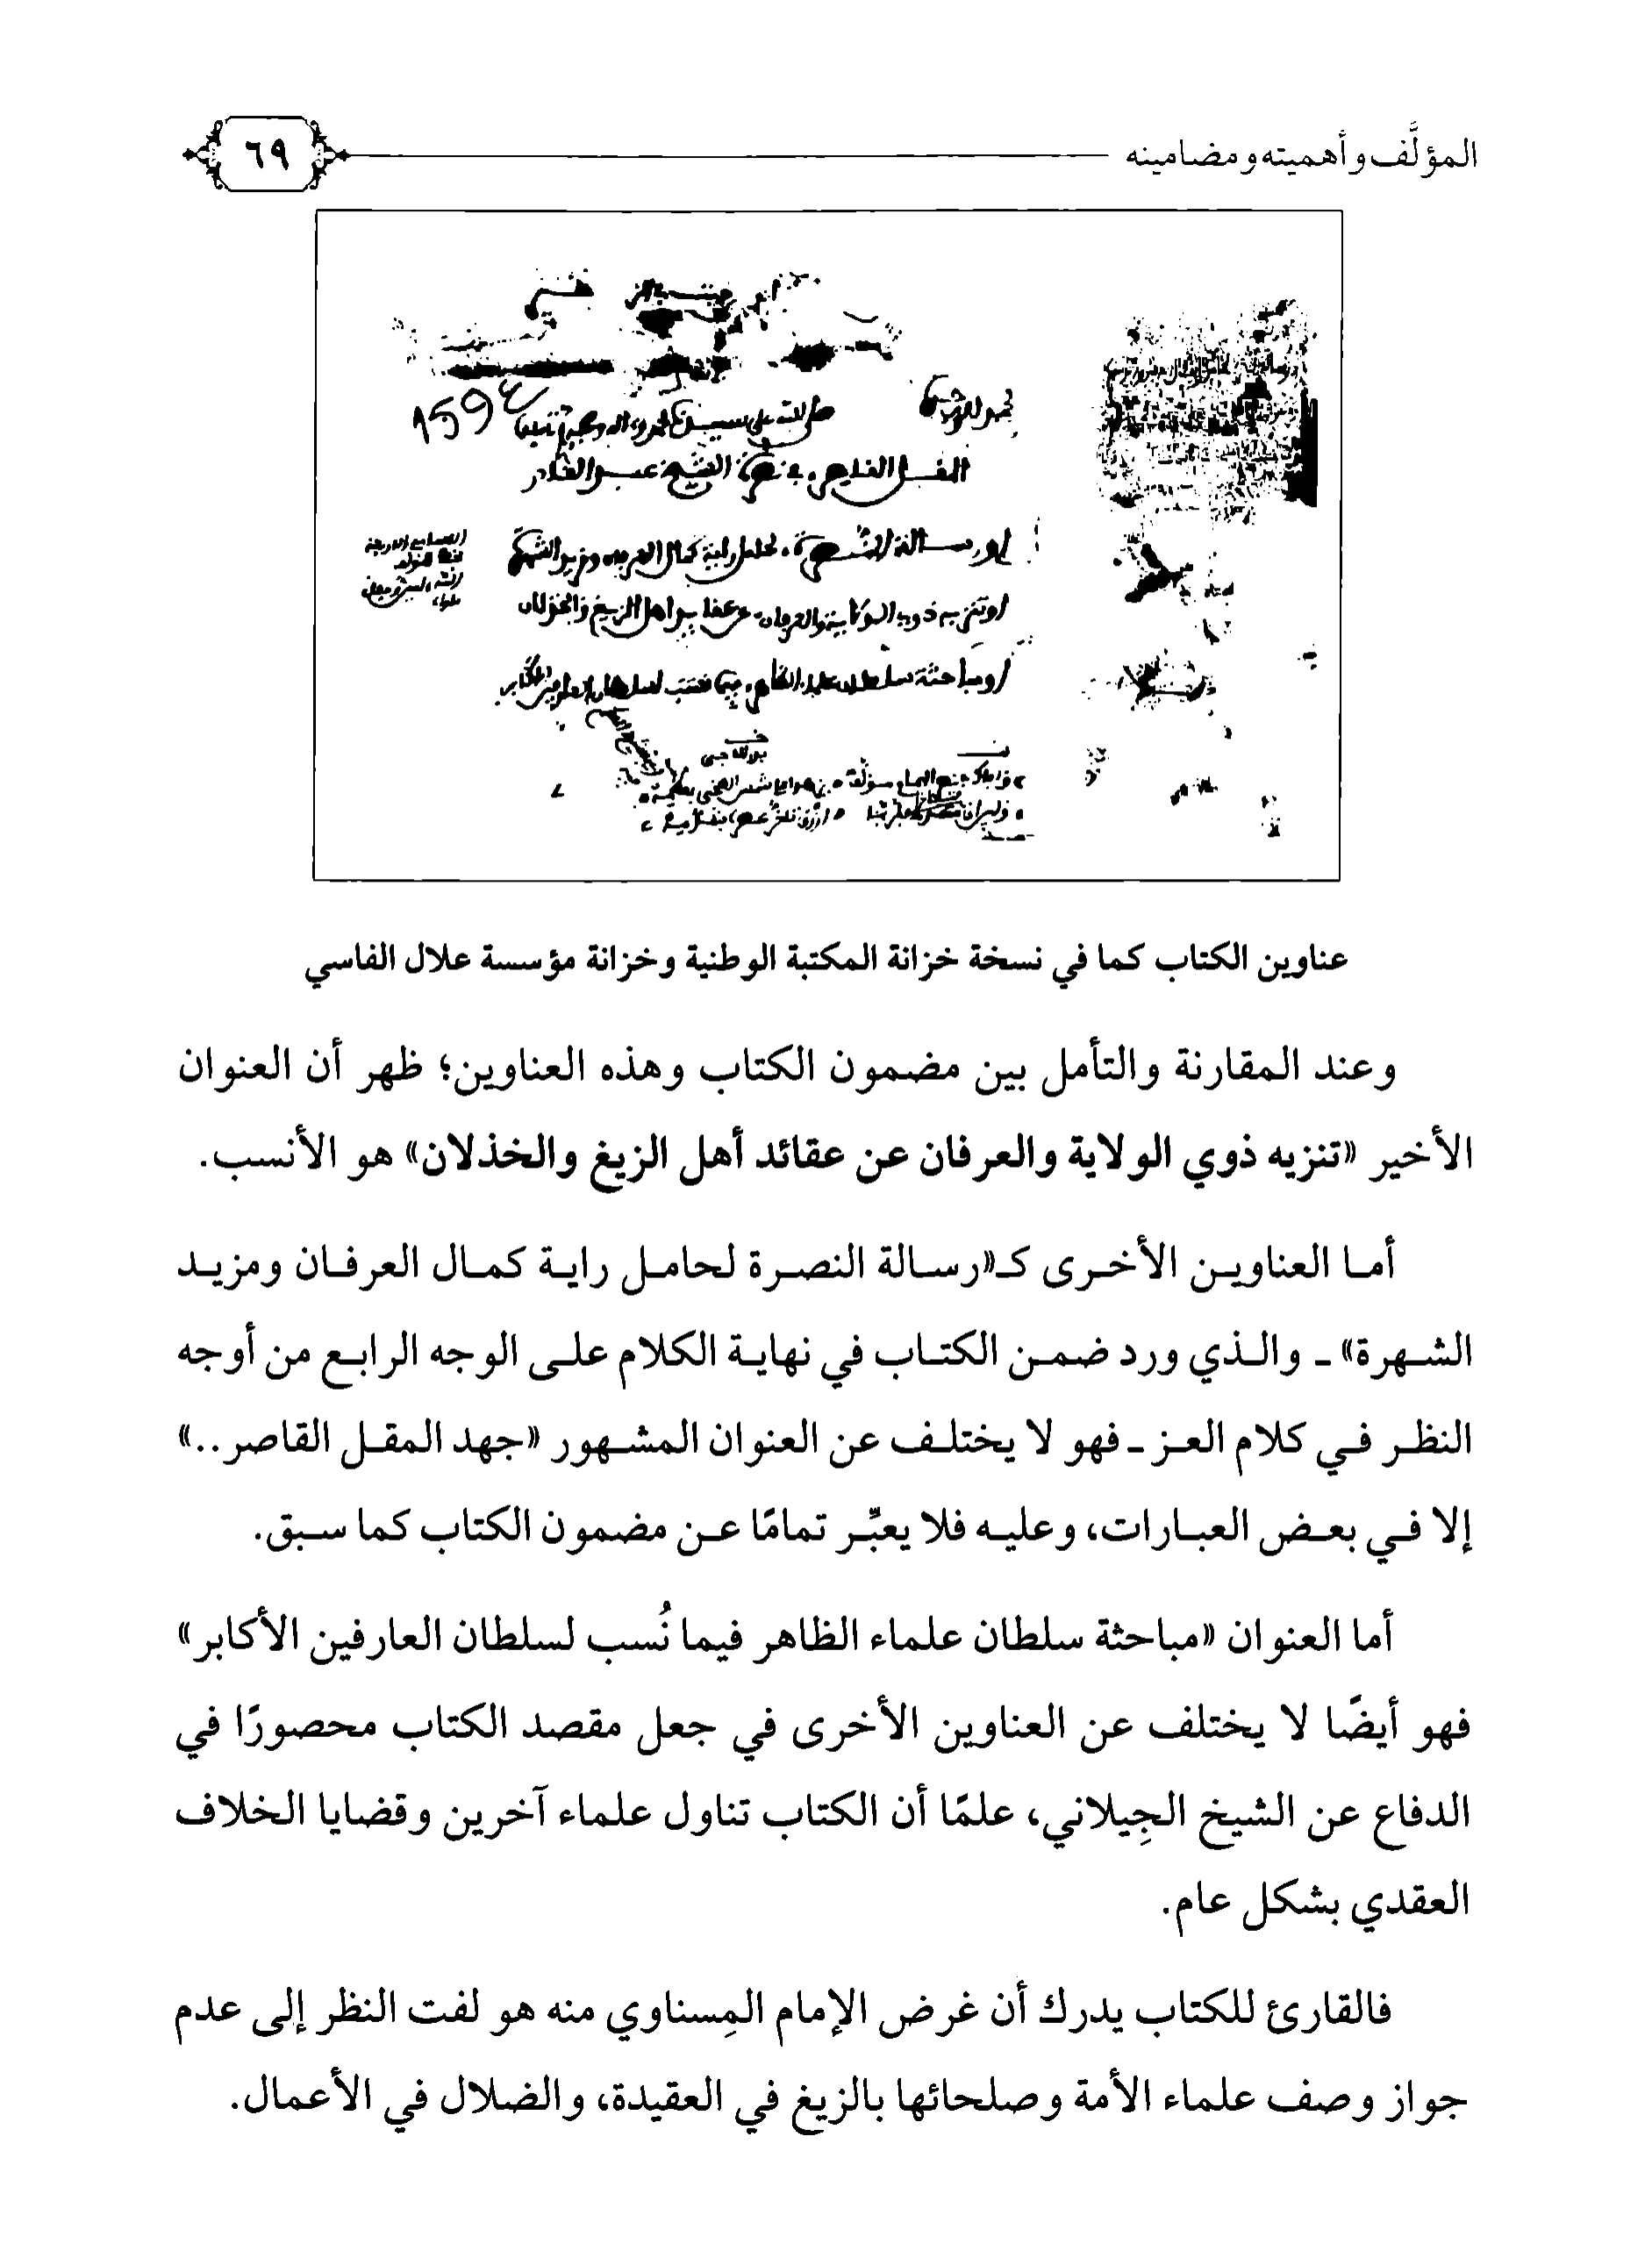 المؤلَّف وأهميته ومضامينه
٦٩
صلى الله على سيدنا
الشيخ عبد القادر
أو رسالة النصرة لحامل راية كمال العرفان ومزيد الشهرة
أو تنزيه ذوي الولاية والعرفان عن عقايد أهل الزيغ والخذلان
أو مباحثة سلطان علماء الظاهر فيما نسب لسلطان العارفين الأكابر
عناوين الكتاب كما في نسخة خزانة المكتبة الوطنية وخزانة مؤسسة علال الفاسي
وعند المقارنة والتأمل بين مضمون الكتاب وهذه العناوين؛ ظهر أن العنوان
الأخير «تنزيه ذوي الولاية والعرفان عن عقائد أهل الزيغ والخذلان» هو الأنسب.
أما العناوين الأخرى كـ«رسالة النصرة لحامل راية كمال العرفان ومزيد
الشهرة» ـ والذي ورد ضمن الكتاب في نهاية الكلام على الوجه الرابع من أوجه
النظر في كلام العز ـ فهو لا يختلف عن العنوان المشهور «جهد المقل القاصر..»
إلا في بعض العبارات، وعليه فلا يعبِّر تمامًا عن مضمون الكتاب كما سبق.
أما العنوان «مباحثة سلطان علماء الظاهر فيما نُسب لسلطان العارفين الأكابر»
فهو أيضًا لا يختلف عن العناوين الأخرى في جعل مقصد الكتاب محصورًا في
الدفاع عن الشيخ الجِيلاني، علمًا أن الكتاب تناول علماء آخرين وقضايا الخلاف
العقدي بشكل عام.
فالقارئ للكتاب يدرك أن غرض الإمام المِسناوي منه هو لفت النظر إلى عدم
جواز وصف علماء الأمة وصلحائها بالزيغ في العقيدة، والضلال في الأعمال.